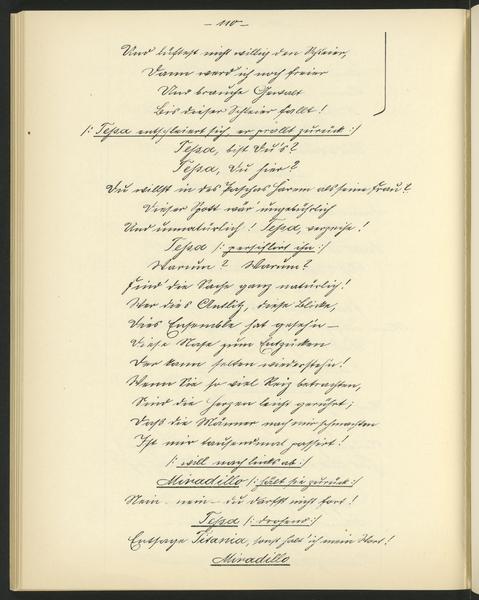 – 110 –
Und lüftest nicht willig den Schleier,
Dann werd ich noch freier
Und brauche Gewalt
Bis dieser Schleier fällt!
/: Tessa entschleiert sich, er prallt zurück :/
Tessa, bist Du's?
Tessa, Du hier?
Du willst in des Paschas Harem als seine Frau?
Dieser Spott wär' ungebührlich
Und unnatürlich! Tessa, verzeihe!
Tessa /: persiflirt ihn :/
Warum? Warum?
Find die Sache ganz natürlich!
Wer dies Antlitz, diese Blicke,
Dies Ensemble hat gesehn –
Diese Nase zum Entzücken
Der kann selten widerstehn!
Wenn Sie so viel Reiz betrachten,
Sind die Herzen leicht gerührt;
Dass die Männer nach mir schmachten
Ist mir tausendmal passirt!
/: will nach links ab :/
Miradillo /: hält sie zurück :/
Nein – nein – du darfst nicht fort!
Tessa /: drohend :/
Entsage Titania, sonst halt' ich mein Wort!
Miradillo